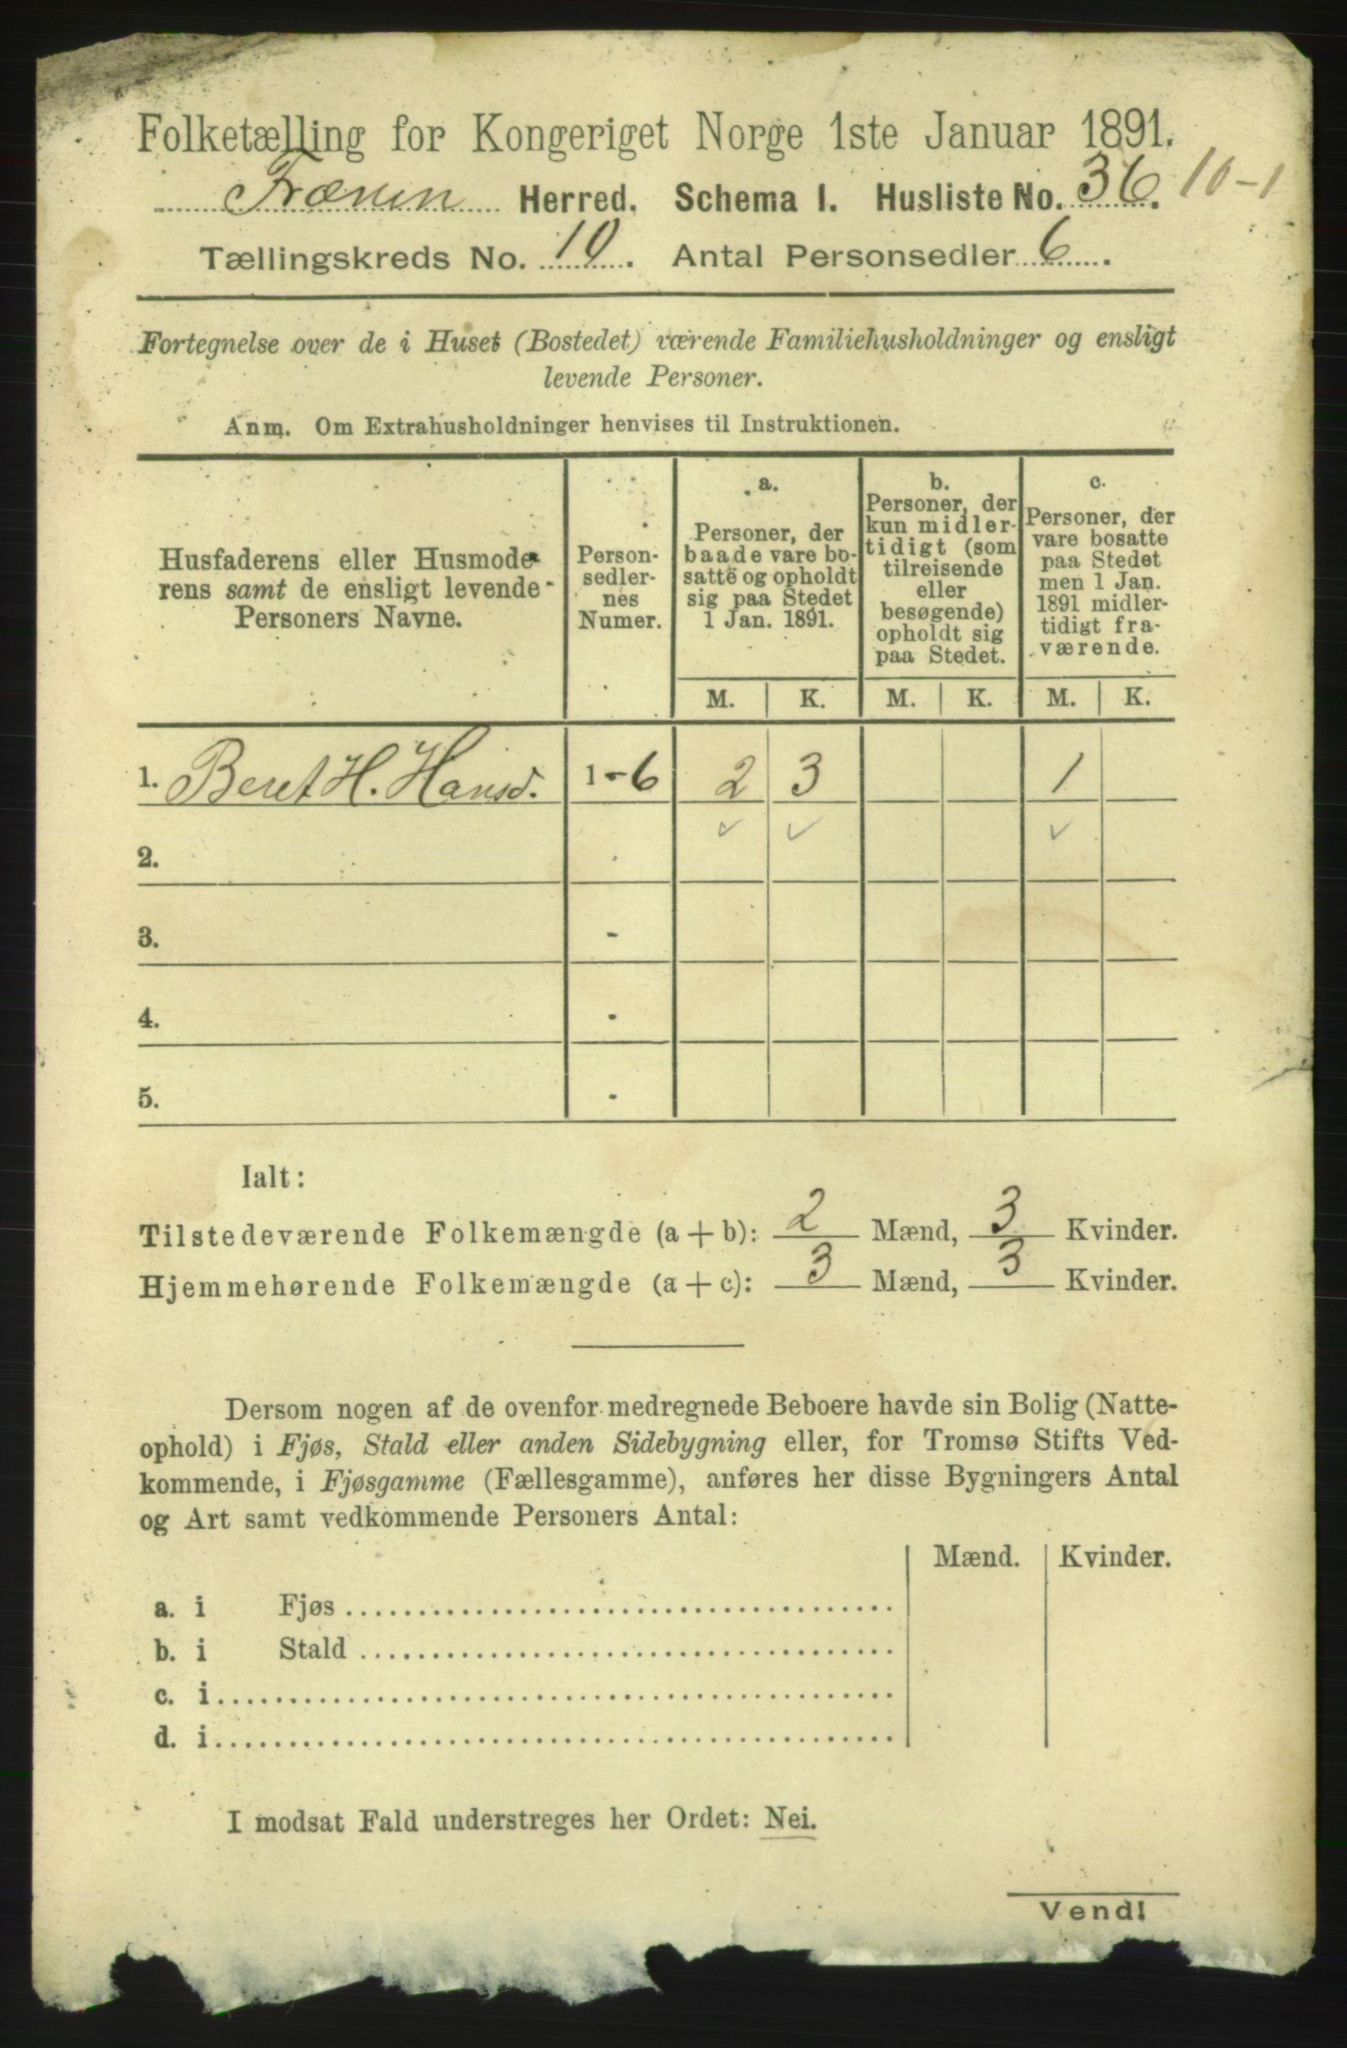 Folketælling for Kongeriget Norge 1ste Januar 1891.
Frænen Herred. Schema I. Husliste No. 36. 10-1
Tællingskreds No. 10. Antal Personsedler 6.
Fortegnelse over de i Huset (Bostedet) værende Familiehusholdninger og ensligt
levende Personer.
Anm. Om Extrahusholdninger henvises til Instruktionen.
Husfaderens eller Husmode-
rens samt de ensligt levende
Personers Navne.
Person-
sedler-
nes
Numer.
a.
Personer, der
baade vare bo-
satte og opholdt
sig paa Stedet
1 Jan. 1891.
b.
Personer, der
kun midler-
tidigt (som
tilreisende
eller
besøgende)
opholdt sig
paa Stedet.
c.
Personer, der
vare bosatte
paa Stedet
men 1 Jan.
1891 midler-
tidigt fra-
værende.
M. K. M. K. M. K.
1. Beret H. Hansd. 1-6 2 3 1
✓ ✓ ✓
2.
3. -
4. -
5. -
Ialt:
Tilstedeværende Folkemængde (a + b): 2 Mænd, 3 Kvinder.
Hjemmehørende Folkemængde (a + c): 3 Mænd, 3 Kvinder.
Dersom nogen af de ovenfor medregnede Beboere havde sin Bolig (Natte-
ophold) i Fjøs, Stald eller anden Sidebygning eller, for Tromsø Stifts Ved-
kommende, i Fjøsgamme (Fællesgamme), anføres her disse Bygningers Antal
og Art samt vedkommende Personers Antal:
Mænd. Kvinder.
a. i Fjøs
b. i Stald
c. i
d. i
I modsat Fald understreges her Ordet: Nei.
Vend!